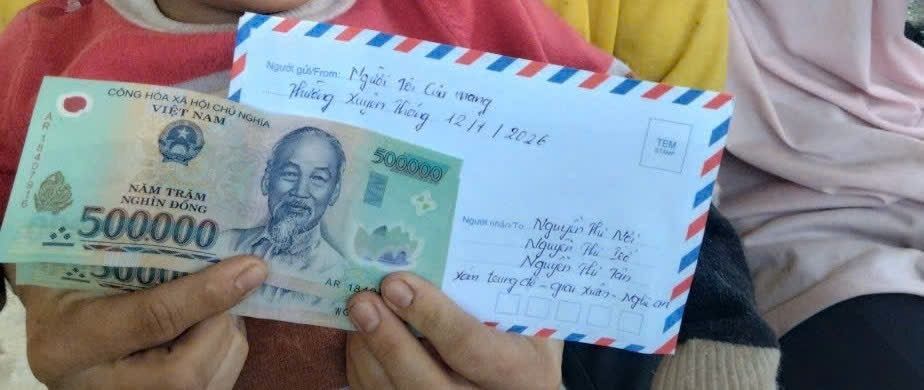 CÔNG HÒA XÃ HỘI CHỦ NGHĨA
VIỆT NAM
NĂM TRĂM
NGHÌN ĐỒNG
500000
500000
AR 18407916
AR 184
Người gửi/From: Người Tôi Cửu mang
Thường Xuyên Thống 12/1/2026
TEM
STAMP
Người nhận/To: Nguyễn Thị Nội
Nguyễn Thị
Nguyễn Thị
xóm trung đề - giai Xuân - Nghệ an